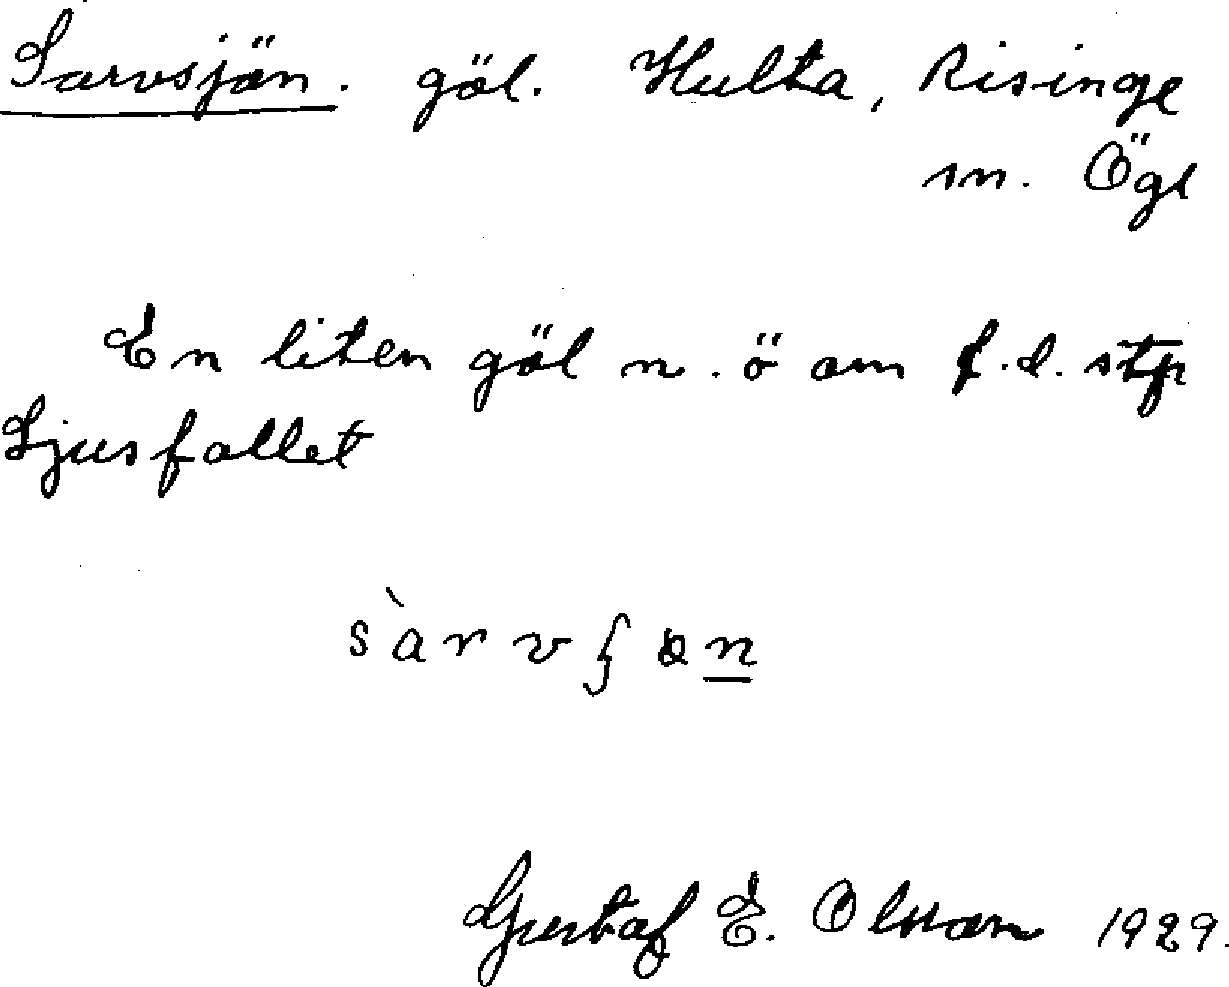 Sarvsjön. göl. Hulta, Risinge
sn. Ögl
En liten göl n. ö om f.d. stp
Ljusfallet
sàrvʃɷn
Gustaf E. Olsson 1929.